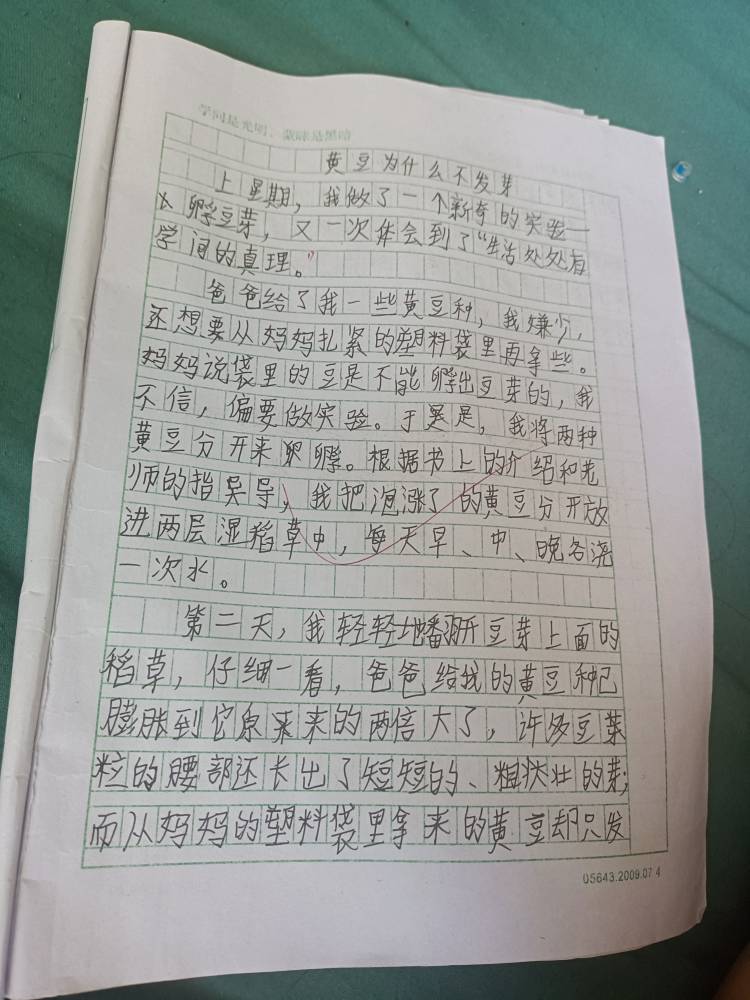 学问是光明，蒙昧是黑暗
黄豆为什么不发芽
上星期，我做了一个新奇的实验一
孵豆芽，又一次体会到了“生活处处有
学问的真理。”
爸爸给了我一些黄豆种，我嫌少，
还想要从妈妈扎紧的塑料袋里再拿些。
妈妈说袋里的豆是不能孵出豆芽的，我
不信，偏要做实验。于是，我将两种
黄豆分开来孵。根据书上的介绍和老
师的指导，我把泡涨了的黄豆分开放
进两层湿稻草中，每天早、中、晚各浇
一次水。
第二天，我轻轻地翻开豆芽上面的
稻草，仔细一看，爸爸给我的黄豆种已
膨胀到它原来的两倍大了，许多豆芽
粒的腰部还长出了短短的、粗壮的芽；
而从妈妈的塑料袋里拿来的黄豆却只发
05643.2009.07.4